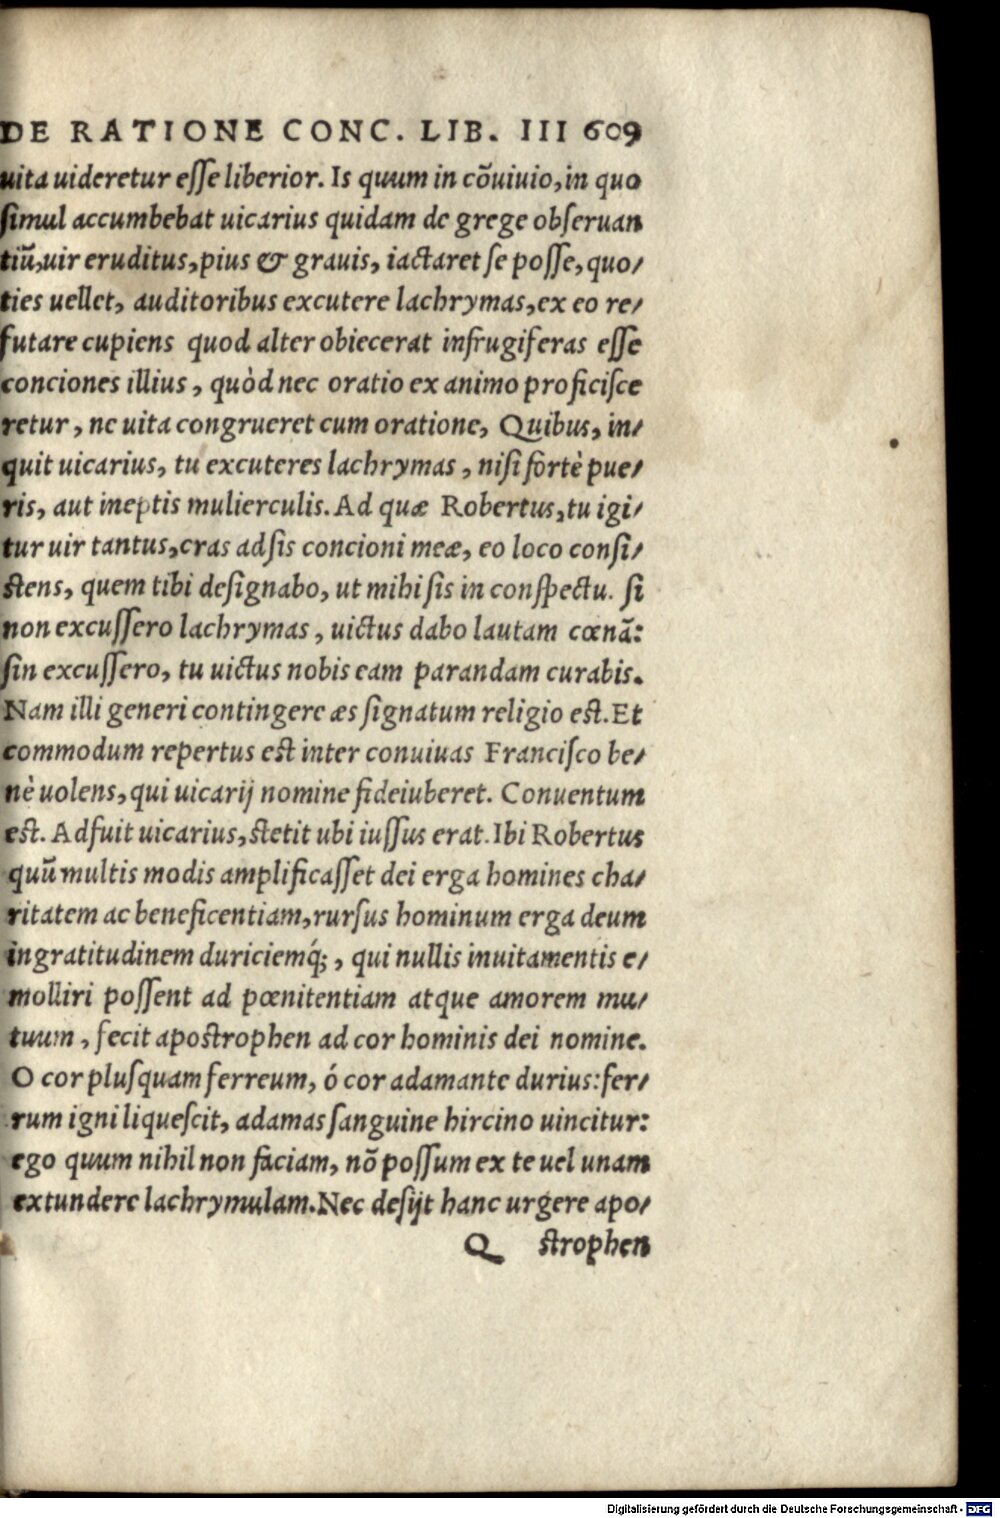 DE RATIONE CONC. LIB. III 609
uita uideretur eſſe liberior. Is quum in cõuiuio, in quo
ſimul accumbebat uicarius quidam de grege obſeruan
tiũ, uir eruditus, pius & grauis, iactaret ſe poſſe, quo/
ties uellet, auditoribus excutere lachrymas, ex eo re/
futare cupiens quod alter obiecerat infrugiferas eſſe
conciones illius, quòd nec oratio ex animo proficiſce
retur, nc uita congrueret cum oratione, Quibus, in/
quit uicarius, tu excuteres lachrymas, niſi fortè pue/
ris, aut ineptis mulierculis. Ad quæ Robertus, tu igi/
tur uir tantus, cras adſis concioni meæ, eo loco conſi/
ſtens, quem tibi deſignabo, ut mihi ſis in conſpectu. ſi
non excuſſero lachrymas, uictus dabo lautam cœnã:
ſin excuſſero, tu uictus nobis eam parandam curabis.
Nam illi generi contingere æs ſignatum religio eſt. Et
commodum repertus eſt inter conuiuas Franciſco be/
nè uolens, qui uicarij nomine fideiuberet. Conuentum
eſt. Adfuit uicarius, ſtetit ubi iuſſus erat. Ibi Robertus
quũ multis modis amplificaſſet dei erga homines cha/
ritatem ac beneficentiam, rurſus hominum erga deum
ingratitudinem duriciemq́;, qui nullis inuitamentis e/
molliri poſſent ad pœnitentiam atque amorem mu/
tuum, fecit apoſtrophen ad cor hominis dei nomine.
O cor pluſquam ferreum, ó cor adamante durius: fer/
rum igni liqueſcit, adamas ſanguine hircino uincitur:
ego quum nihil non faciam, nõ poſſum ex te uel unam
extundere lachrymulam. Nec deſijt hanc urgere apo/
Q ſtrophen
Digitalisierung gefördert durch die Deutsche Forschungsgemeinschaft - DFG